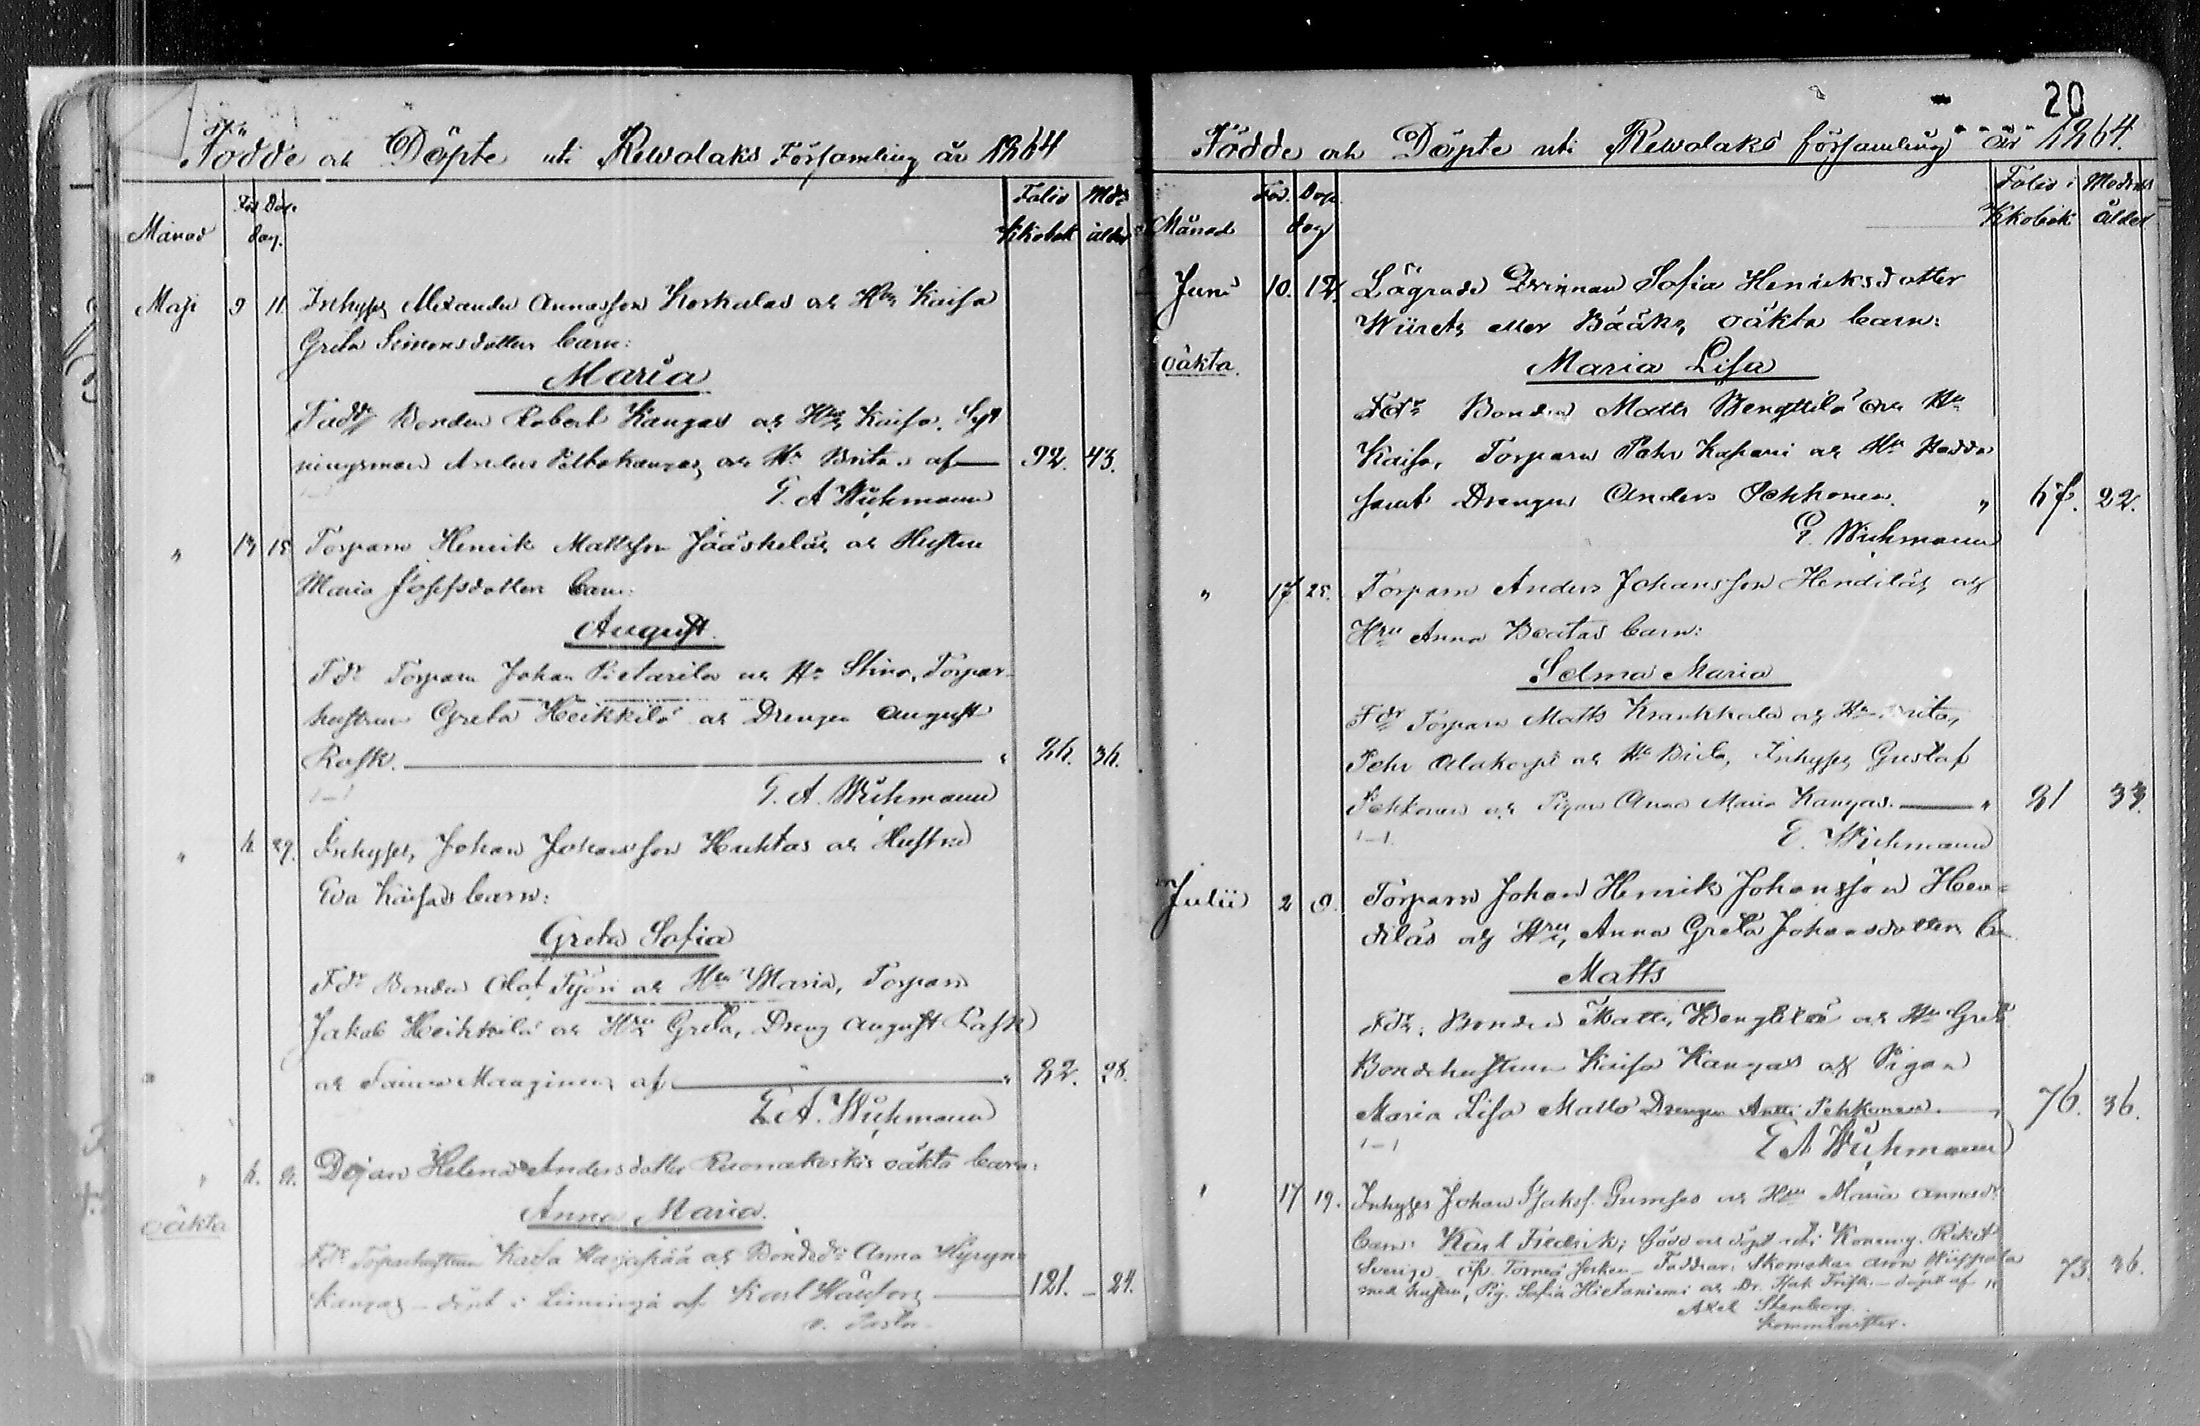 Födde och Döpte uti Rewolaks Församling år 1864
Månad Föd. Döp. dag. Folio Kkobok Mdrs ålder
Maji 9 11 Inhyses Alexander Annasson Koskelas och Hru Kaisa
Greta Simonsdotters barn:
Maria
Fadd Bonden Robert Kangas och Hru Kaisa,
ningsman Anders Peltokangas och Hu Brita af 92. 43.
E. A. Wichmann
" 13 15 Torparen Henrik Mattsson Jääskeläs och Hustru
Maria Josefsdotters barn:
August.
Fdr Torparen Johan Pietarila och Hu Stina, Torpar-
hustrun Greta Heikkilä och Drengen August
Rask. 36.
E. A. Wichmann
" 29. Inhyses Johan Johansson Huhtas och Hustru
Eva Kaisas barn:
Greta Sofia
Fdr Bonden Olof Työri och Hru Maria, Torparen
Jakob Heikkilä och Hru Greta, Dreng August Rask
och af 82. 28.
E. A. Wichmann
" Dejan Helena Andersdotter Ruonakoskis oäkta barn:
oäkta Anna Maria.
Fdr Torparhustrun Kaisa Harjapää och Bondedr Anna
kangas – döpt i Limingå af Karl 121. – 24.
v. Pastor
20
Födde och Döpte uti Rewolaks församling år 1864.
Månad Föd. Döp. dag Folio i Kkobok Modrens ålder
Juni 10. 12. Lägrade Qvinnan Sofia Henriksdotter
Wiirets eller Bääks, oäkta barn:
oäkta. Maria Lisa
Fdr Bonden Matts Wengttilä och Hu
Kaisa, Torparen Pehr Kasani och Hu Hedda
samt Drengen Anders Pehkonen. " 67. 22.
E. Wichmann
" 17 25. Torparen Anders Johansson Hendiläs och
Hru Anna Beatas barn:
Selma Maria
Fdr Torparen Matts Krankkala och Hu Brita,
Pehr Alakorpi och Hu Brita, Inhyses Gustaf
Pehkonen och Pigan Anna Maria Kangas. " 81 33.
E. Wichmann
Julii 2 Torparen Johan Henrik Johansson Hen=
diläs och Hru Anna Greta Johansdotters b
Matts
Fdr: Bonden Matts Wengtilä och Hu Greta
Bondehustrun Kaisa Kangas och Pigan
Maria Lisa Matts Drengen Antti Pehkonen. 76. 36.
E A Wichmann
" 17 19. Inhyses Johan Isaks. Gumsas och Hru Maria Annadr
barn: Karl Fredrik; född och döpt uti Konung. Riket
Sverige, Torneå Socken – Faddrar: Skomakar
med hustru, Pig. Sofia Hietaniemi och Dr. Isak – döpt af 73. 36.
Axel Stenborg.
Komminister.